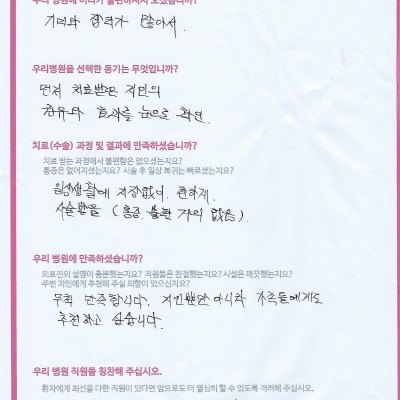 우리 병원에 어디가 불편하셔서 오셨습니까?
우리병원을 선택한 동기는 무엇입니까?
먼저 치료받은 지인의
효과를 눈으로 확인.
치료(수술) 과정 및 결과에 만족하셨습니까?
치료 받는 과정에서 불편함은 없으셨는지요?
통증은 없어지셨는지요? 시술 후 일상 복귀는 빠르셨는지요?
일상생활에 지장없이 편하게.
시술받음 (통증, 불편 거의 없음).
우리 병원에 만족하셨습니까?
의료진의 설명이 충분했는지요? 직원들은 친절했는지요? 시설은 깨끗했는지요?
주변 지인에게 추천해 주실 의향이 있으신지요?
무척 만족합니다. 지인뿐만 아니라 가족들에게도
추천하고 싶습니다.
우리 병원 직원들 칭찬해 주십시오.
환자에게 최선을 다한 직원이 있다면 앞으로도 더 열심히 할 수 있도록 격려해 주십시오.